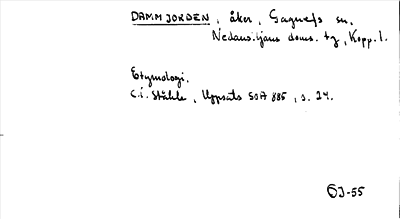 DAMMJORDEN, åker, Gagnefs sn.
Nedansiljans doms. tg, Kopp. l.
Etymologi.
C.I. Ståhle, Uppsats SOA 885, s. 24.
ÖJ-55